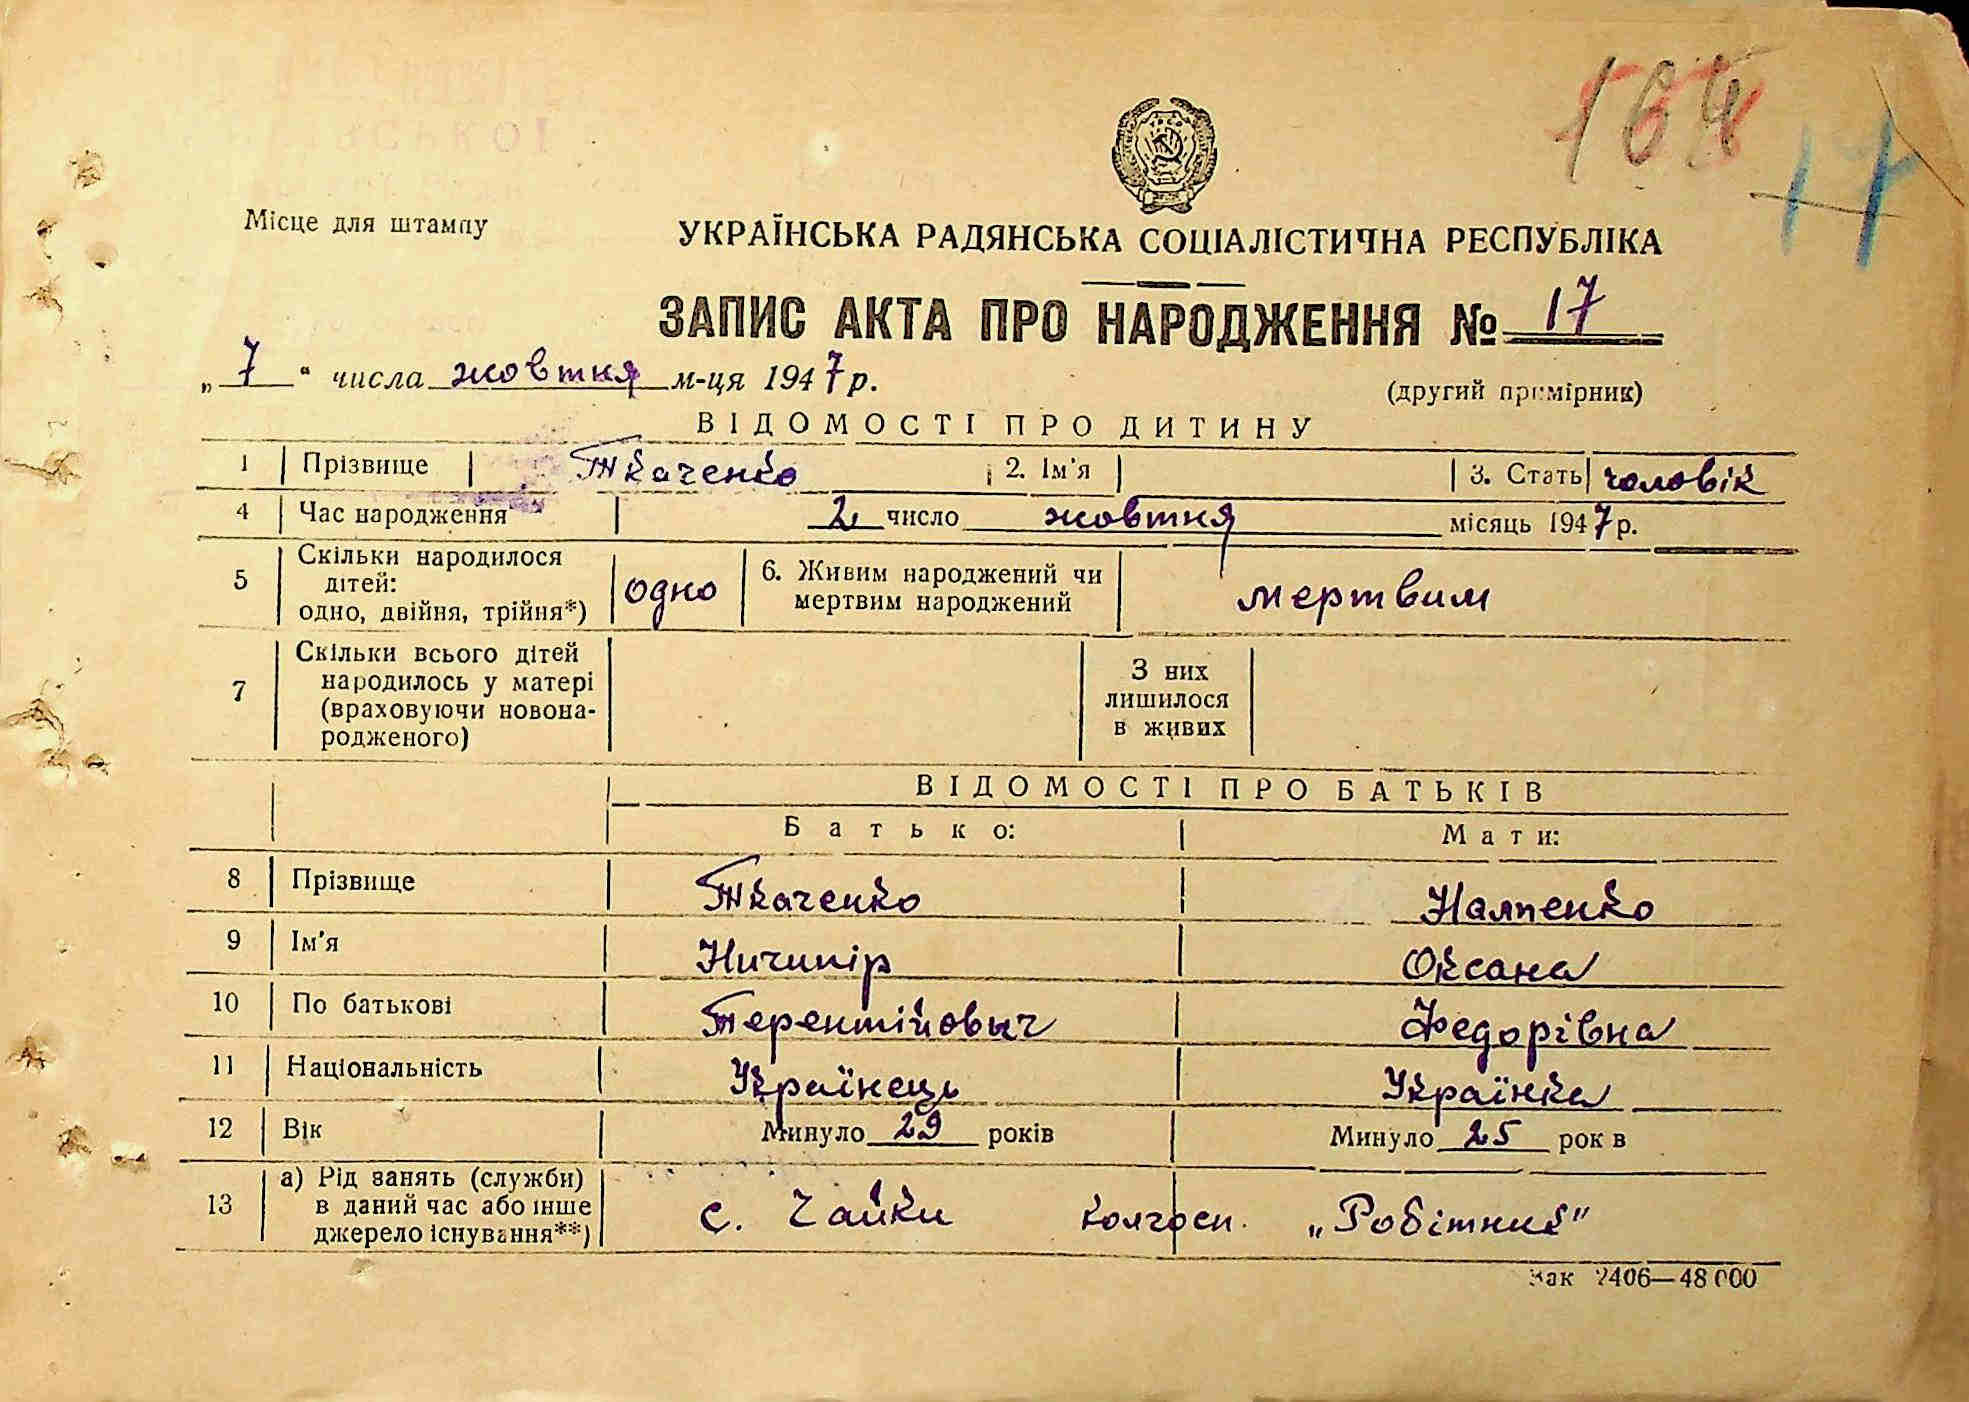 164
17
Місце для штампу
УКРАЇНСЬКА РАДЯНСЬКА СОЦІАЛІСТИЧНА РЕСПУБЛІКА
ЗАПИС АКТА ПРО НАРОДЖЕННЯ № 17
„7“ числа жовтня м-ця 1947 р.
(другий примірник)
ВІДОМОСТІ ПРО ДИТИНУ
1 Прізвище Ткаченко 2. Ім'я 3. Стать чоловік
4 Час народження 2 число жовтня місяць 1947 р.
5 Скільки народилося дітей: одно, двійня, трійня*) одно 6. Живим народжений чи мертвим народжений мертвим
7 Скільки всього дітей народилось у матері (враховуючи новона-родженого) З них лишилося в живих
ВІДОМОСТІ ПРО БАТЬКІВ
Батько: Мати:
8 Прізвище Ткаченко Налпенко
9 Ім'я Ничипір Оксана
10 По батькові Терентійовыч Федорівна
11 Національність Українець Українка
12 Вік Минуло 29 років Минуло 25 рок в
13 а) Рід занять (служби) в даний час або інше джерело існування**) с. Чайки колгосп. „Робітник"
Зак 2406—48 000